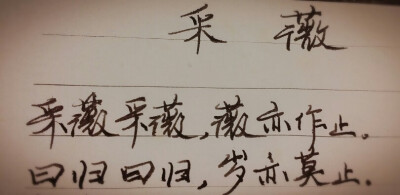 采薇
采薇采薇,薇亦作止。
曰归曰归,岁亦莫止.